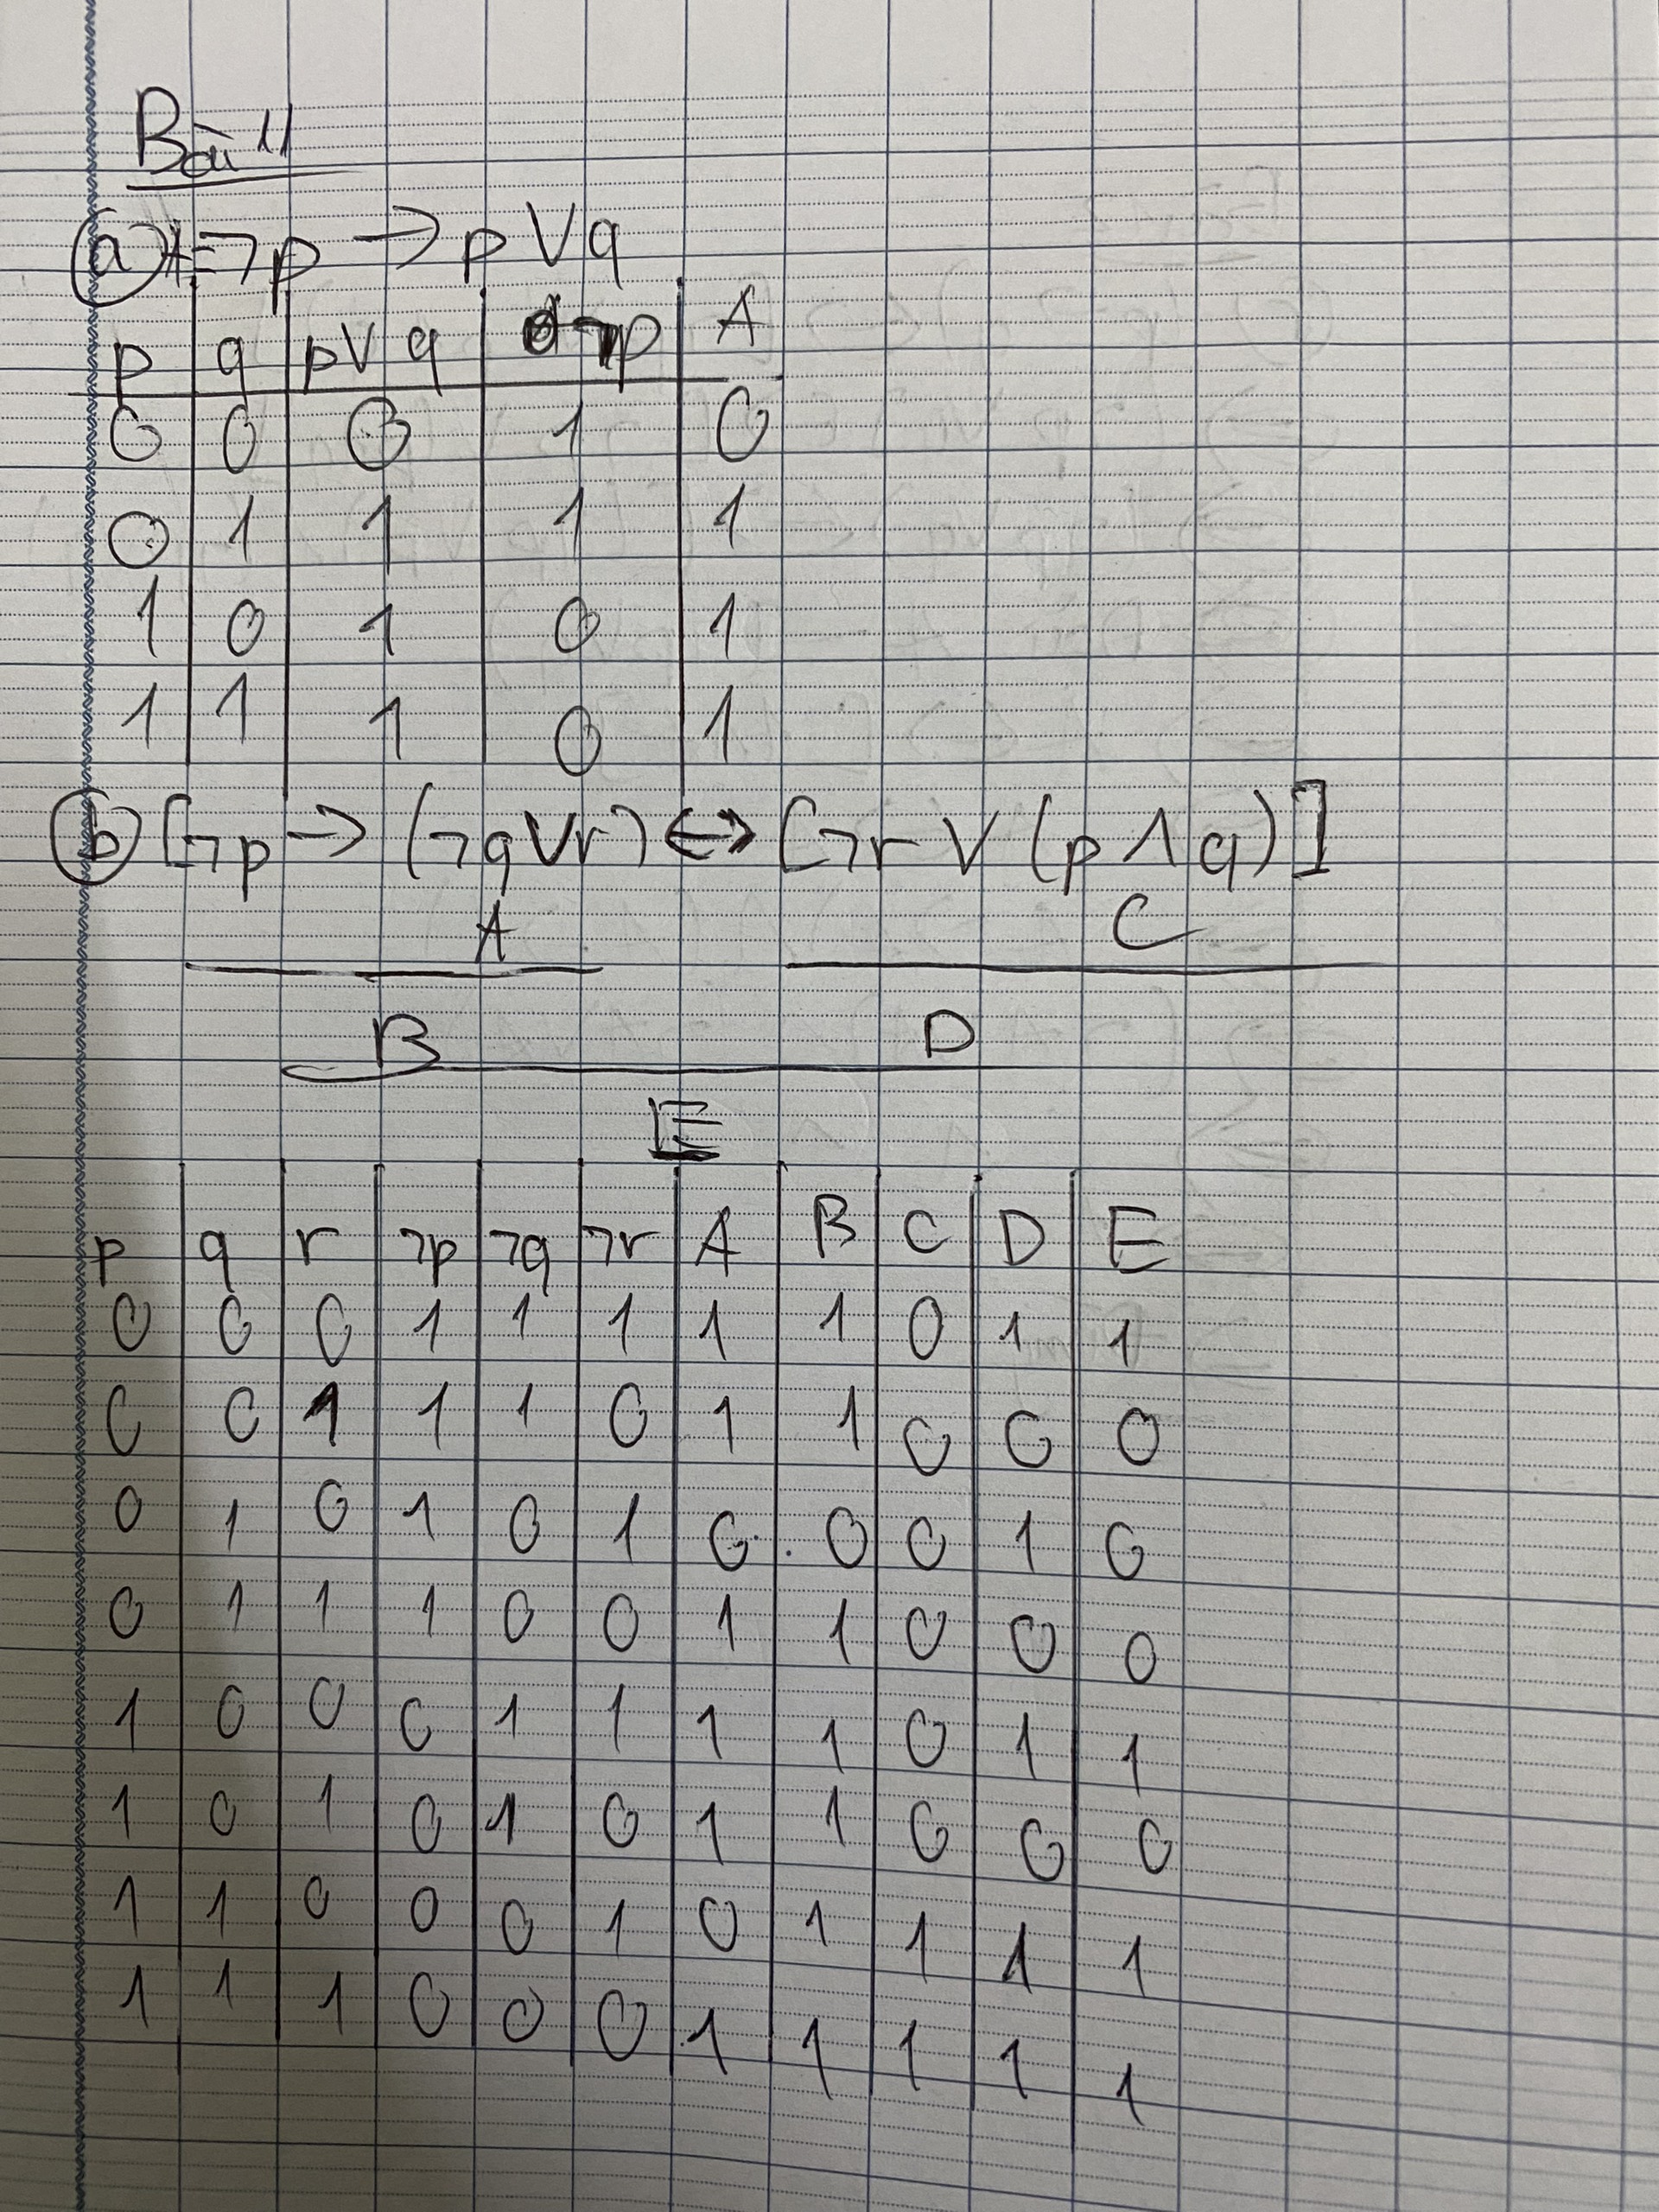 Bài 11
a) A = ¬p → p ∨ q
p q p∨q ¬p A
0 0 0 1 0
0 1 1 1 1
1 0 1 0 1
1 1 1 0 1
b) [¬p → (¬q∨r) ↔ [¬r ∨ (p ∧ q)]
A C
B D
E
p q r ¬p ¬q ¬r A B C D E
0 0 0 1 1 1 1 1 0 1 1
0 0 1 1 1 0 1 1 0 0 0
0 1 0 1 0 1 0 0 0 1 0
0 1 1 1 0 0 1 1 0 0 0
1 0 0 0 1 1 1 1 0 1 1
1 0 1 0 1 0 1 1 0 0 0
1 1 0 0 0 1 0 1 1 1 1
1 1 1 0 0 0 1 1 1 1 1